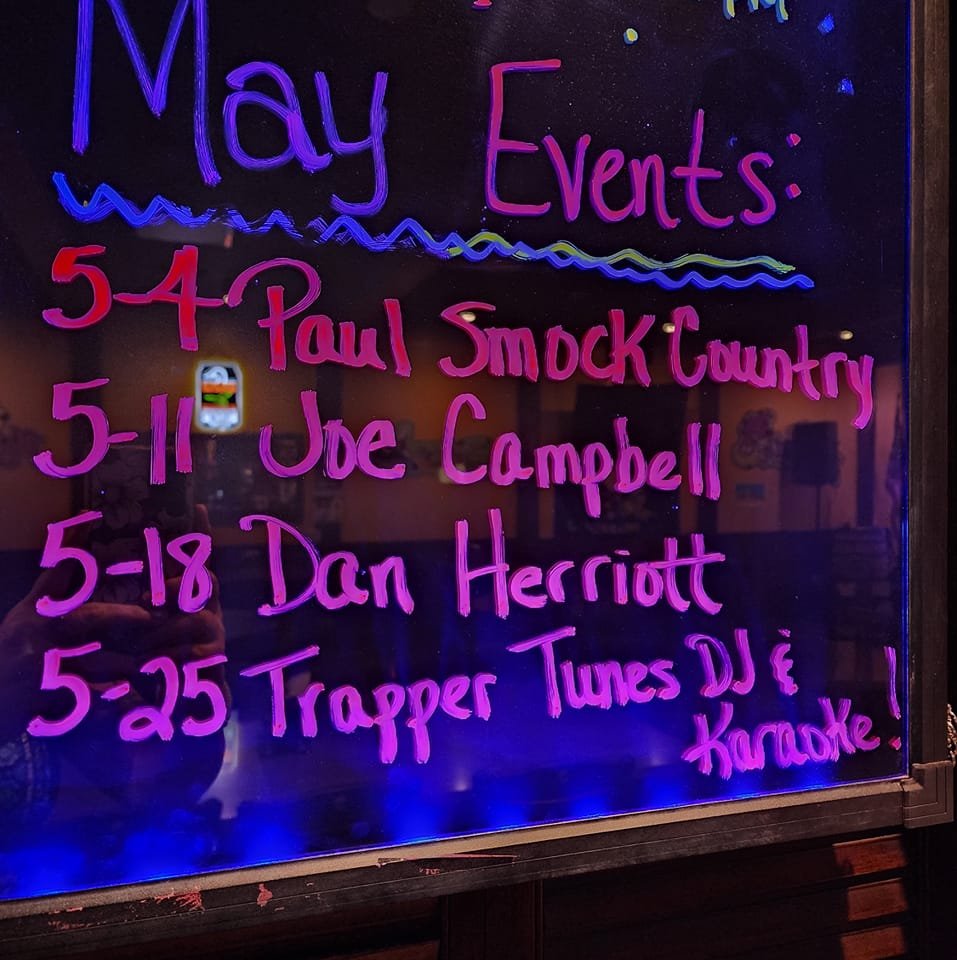 May Events:
5-4 Paul Smock Country
5-11 Joe Campbell
5-18 Dan Herriott
5-25 Trapper Tunes DJ &
Karaoke!